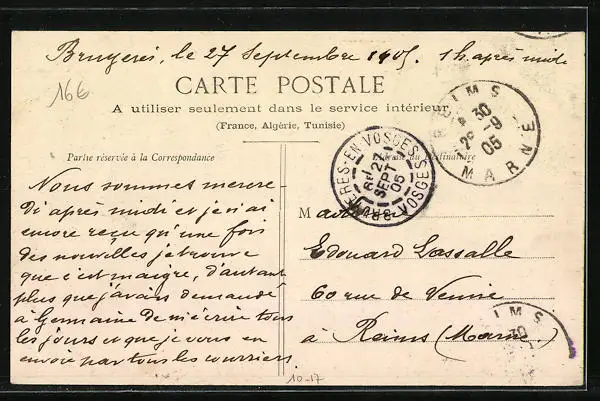 Bruyères, le 27 Septembre 1905. 1h après midi
166
CARTE POSTALE
A utiliser seulement dans le service intérieur
(France, Algérie, Tunisie)
Partie réservée à la Correspondance
Adresse du Destinataire
REIMS
30
-9
05
MARNE
BRUYERES-EN-VOSGES
27
SEPT
05
VOSGES
Nous sommes mercre-
di après midi et je n'ai
encore reçu qu'une fois
des nouvelles je trouve
que c'est maigre, d'autant
plus que j'avais demandé
à Germaine de m'écrire tous
les jours et que je vous en
envoie par tous les courriers
M
Edouard Lassalle
60 rue de Venise
à Reims (Marne)
IMS
30
10-17